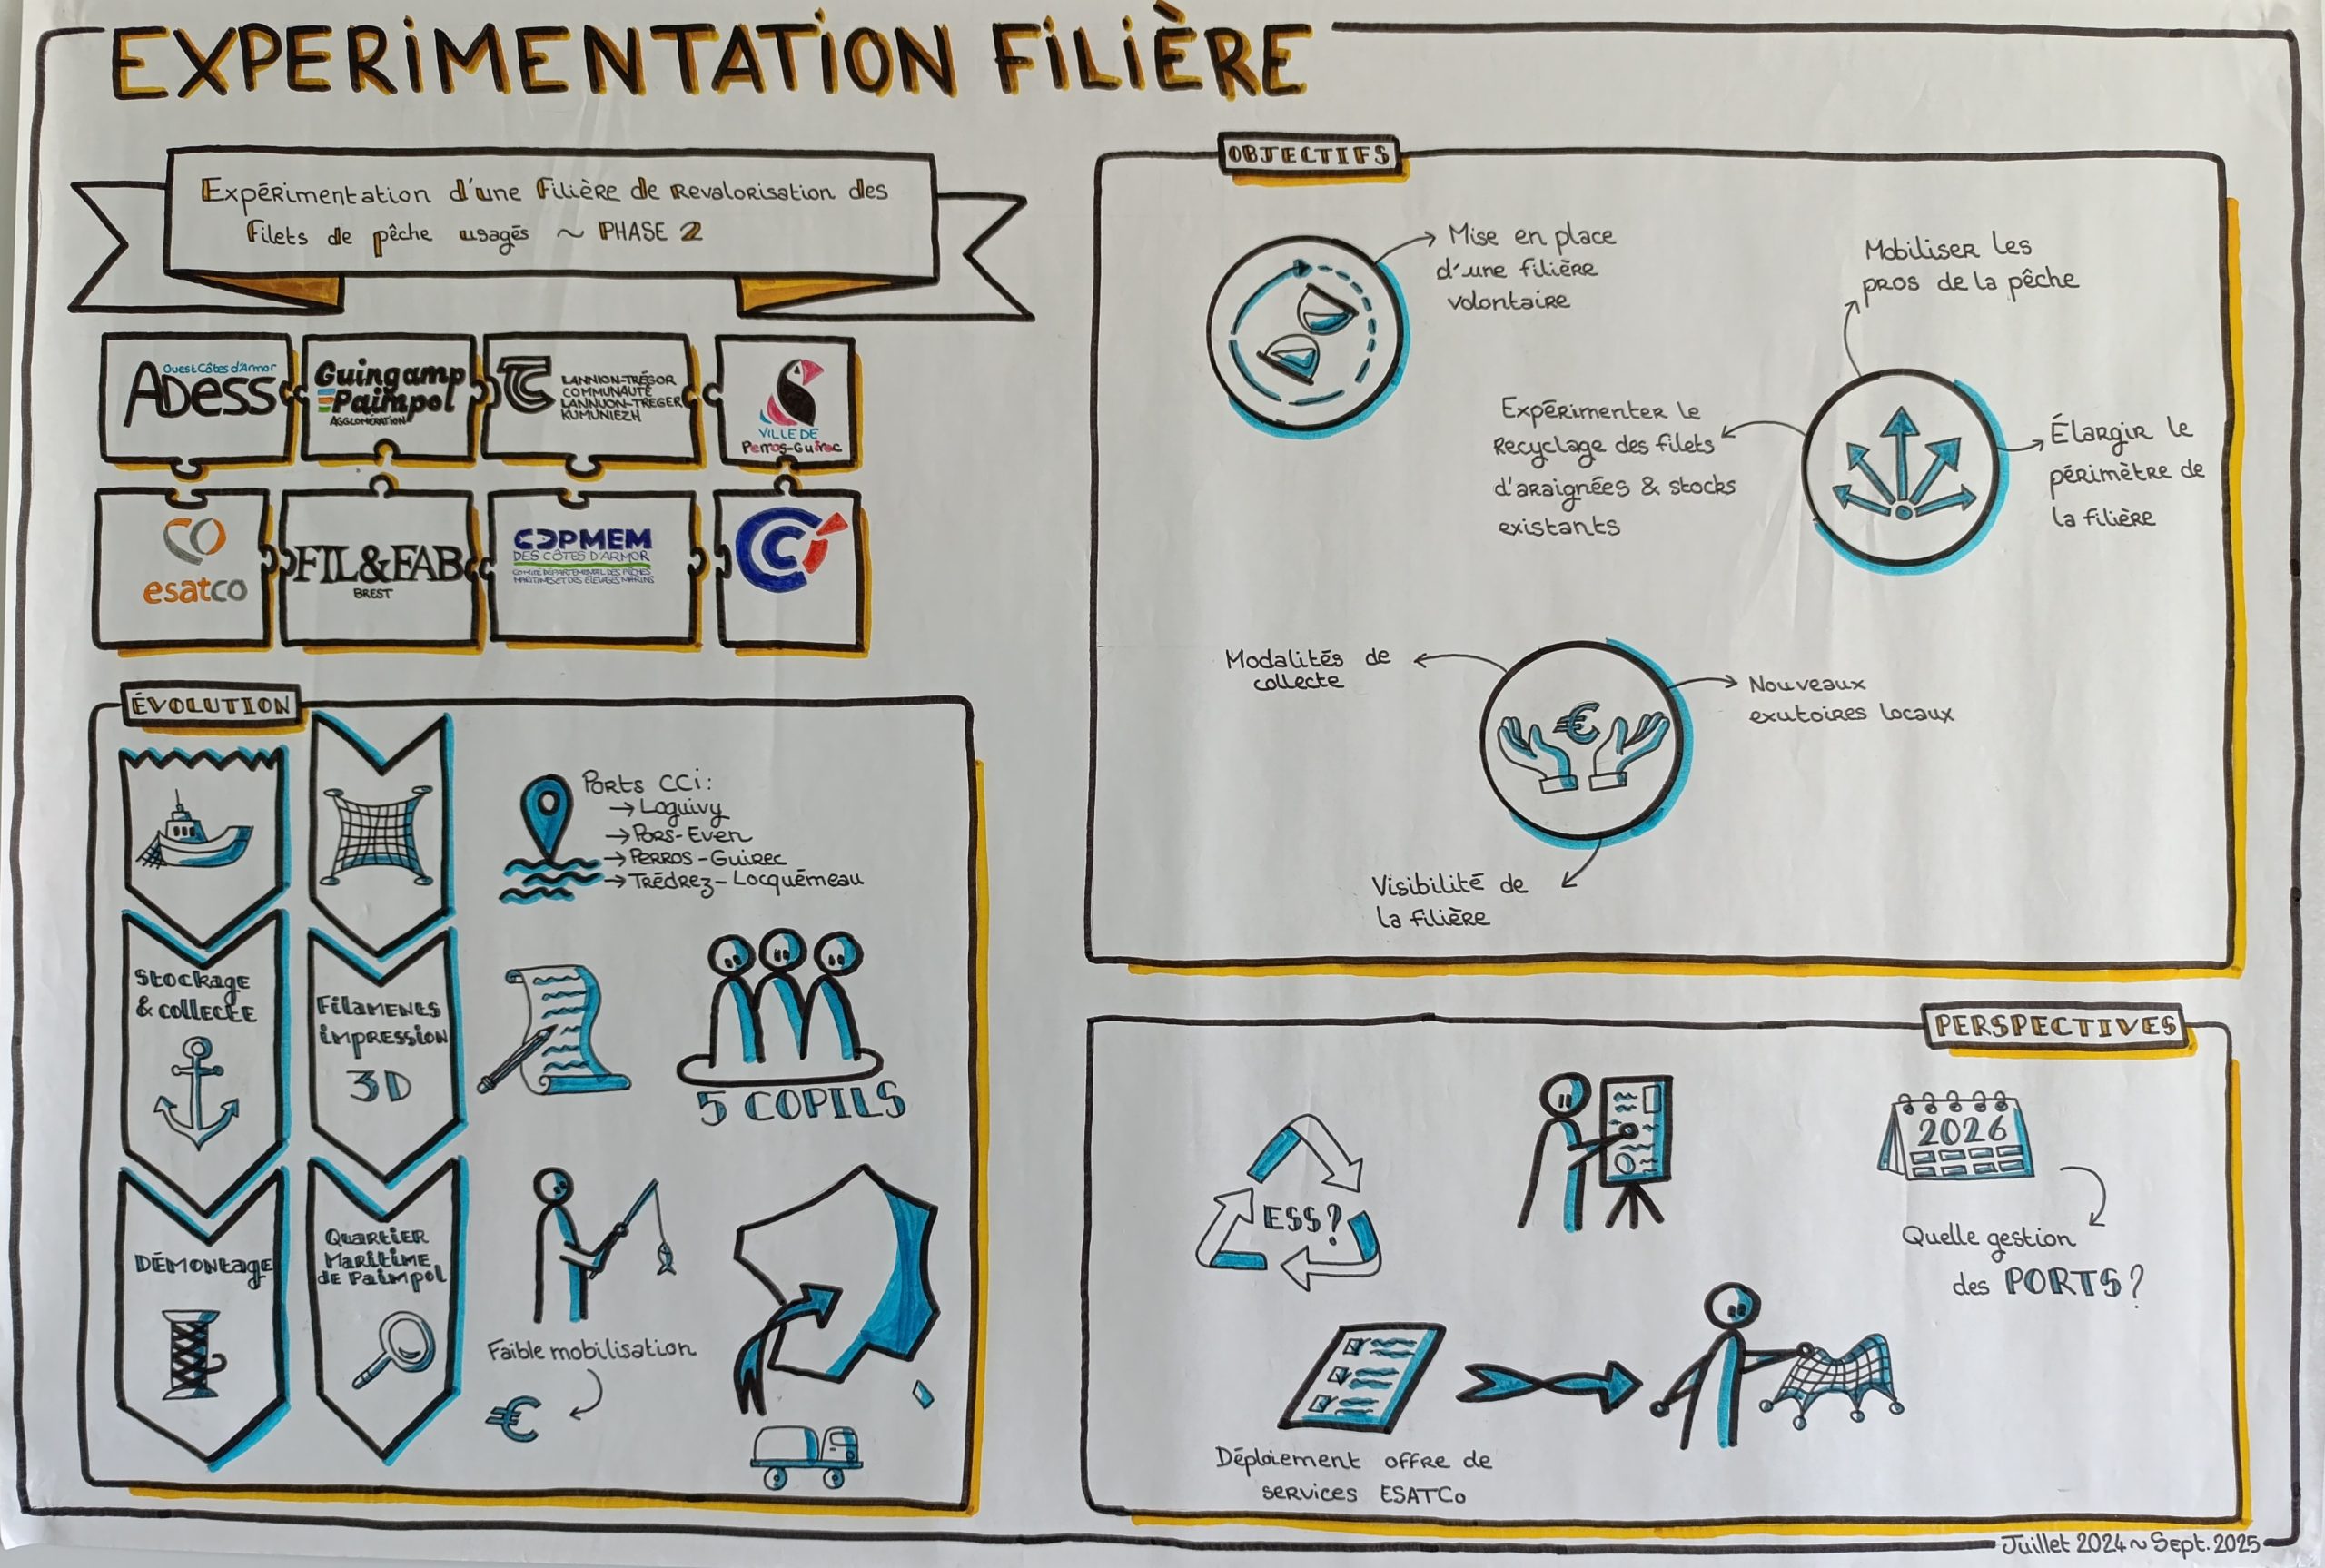 EXPERIMENTATION FILIÈRE
Expérimentation d'une filière de revalorisation des
filets de pêche usagés ~ PHASE 2
Ouest Côtes d'Armor
ADESS
Guingamp
Paimpol
AGGLOMÉRATION
LANNION-TRÉGOR
COMMUNAUTÉ
LANNUON-TREGER
KUMUNIEZH
VILLE DE
Perros-Guirec
esatco
FIL&FAB
BREST
CDPMEM
DES CÔTES D'ARMOR
COMITÉ DÉPARTEMENTAL DES PÊCHES
MARITIMES ET DES ÉLEVAGES MARINS
CCI
ÉVOLUTION
Stockage
& collecte
DÉMONTAGE
Filaments
impression
3D
Quartier
Maritime
de Paimpol
Ports CCi:
→ Loguivy
→ Pors-Even
→ Perros-Guirec
→ Trédrez-Locquémeau
5 COPILS
Faible mobilisation
€
OBJECTIFS
Mise en place
d'une filière
volontaire
Mobiliser les
pros de la pêche
Expérimenter le
recyclage des filets
d'araignées & stocks
existants
Élargir le
périmètre de
la filière
Modalités de
collecte
€
Nouveaux
exutoires locaux
Visibilité de
la filière
PERSPECTIVES
ESS?
2026
Quelle gestion
des PORTS?
Déploiement offre de
services ESATCo
Juillet 2024 ~ Sept. 2025